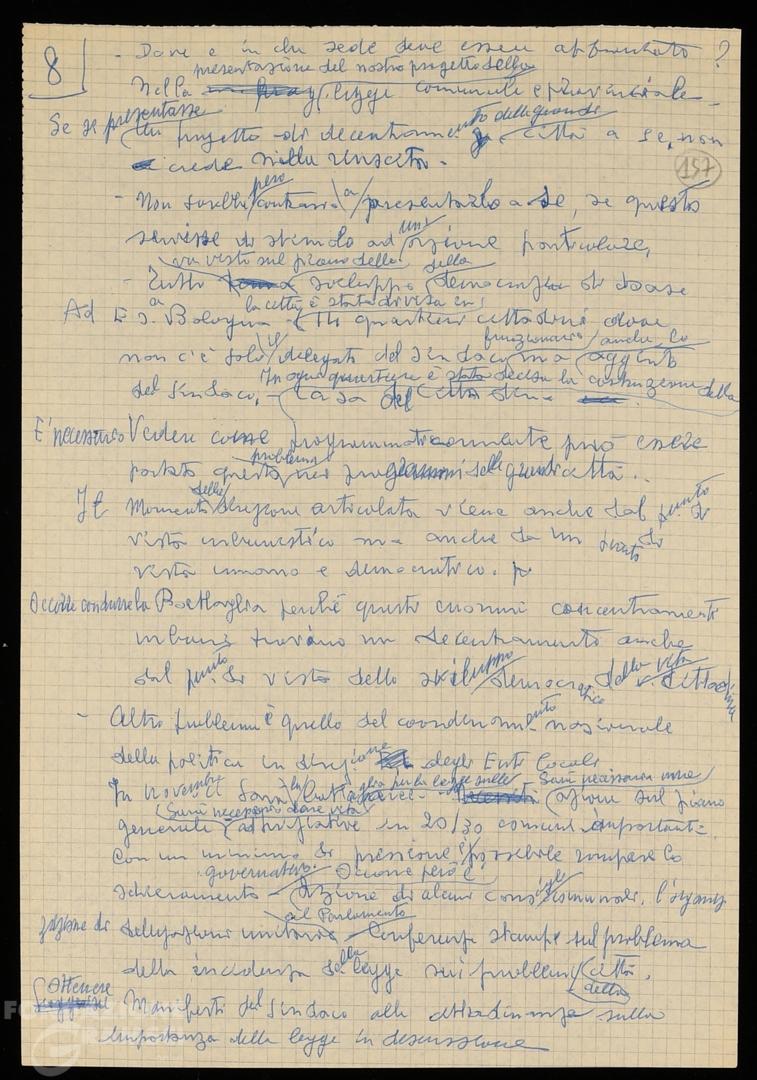 8
- Dove e in che sede deve essere affrontato?
presentazione del nostro progetto della
Nella legge comunale e provinciale -
Se si presentasse un progetto di decentramento delle grandi città a sé, non
crede nella riuscita.
157
però
- Non sarebbe contrario a presentarlo a sé, se questo
servisse di stimolo ad un' azione particolare,
va visto sul piano dello della
- Tutto sviluppo democrazia di base
la città è stata divisa in
Ad es. a Bologna 14 quartieri cittadini dove
funzionario anche lo
non c'è solo il delegato del Sindaco ma aggiunto
In ogni quartiere è stata decisa la costruzione della
del Sindaco, - Casa del cittadino -
E' necessario Vedere come programmaticamente può essere
problema
portato questo nei programmi delle grandi città.
Il momento della direzione articolata viene anche dal punto di
vista urbanistico ma anche da un punto di
vista umano e democratico.
Occorre condurre la Battaglia perché questi enormi concentramenti
urbani trovino un decentramento anche
dal punto di vista dello sviluppo democratico della vita cittadina
- Altro problema è quello del coordinamento nazionale
della politica in direzione degli Enti Locali
In novembre sarà la battaglia per la legge sulle Sarà necessaria una
azione sul piano
(Sarà necessario dare vita
generale ad iniziative in 20/30 comuni importanti
Con un minimo di pressione è possibile rompere lo
governativo. Occorre però
schieramento azione di alcuni consigli comunali, l'organiz
zazione di delegazioni unitarie al Parlamento Conferenze stampa sul problema
della incidenza della legge sui problemi della città.
Ottenere Manifesti del Sindaco alla cittadinanza sulla
importanza della legge in discussione